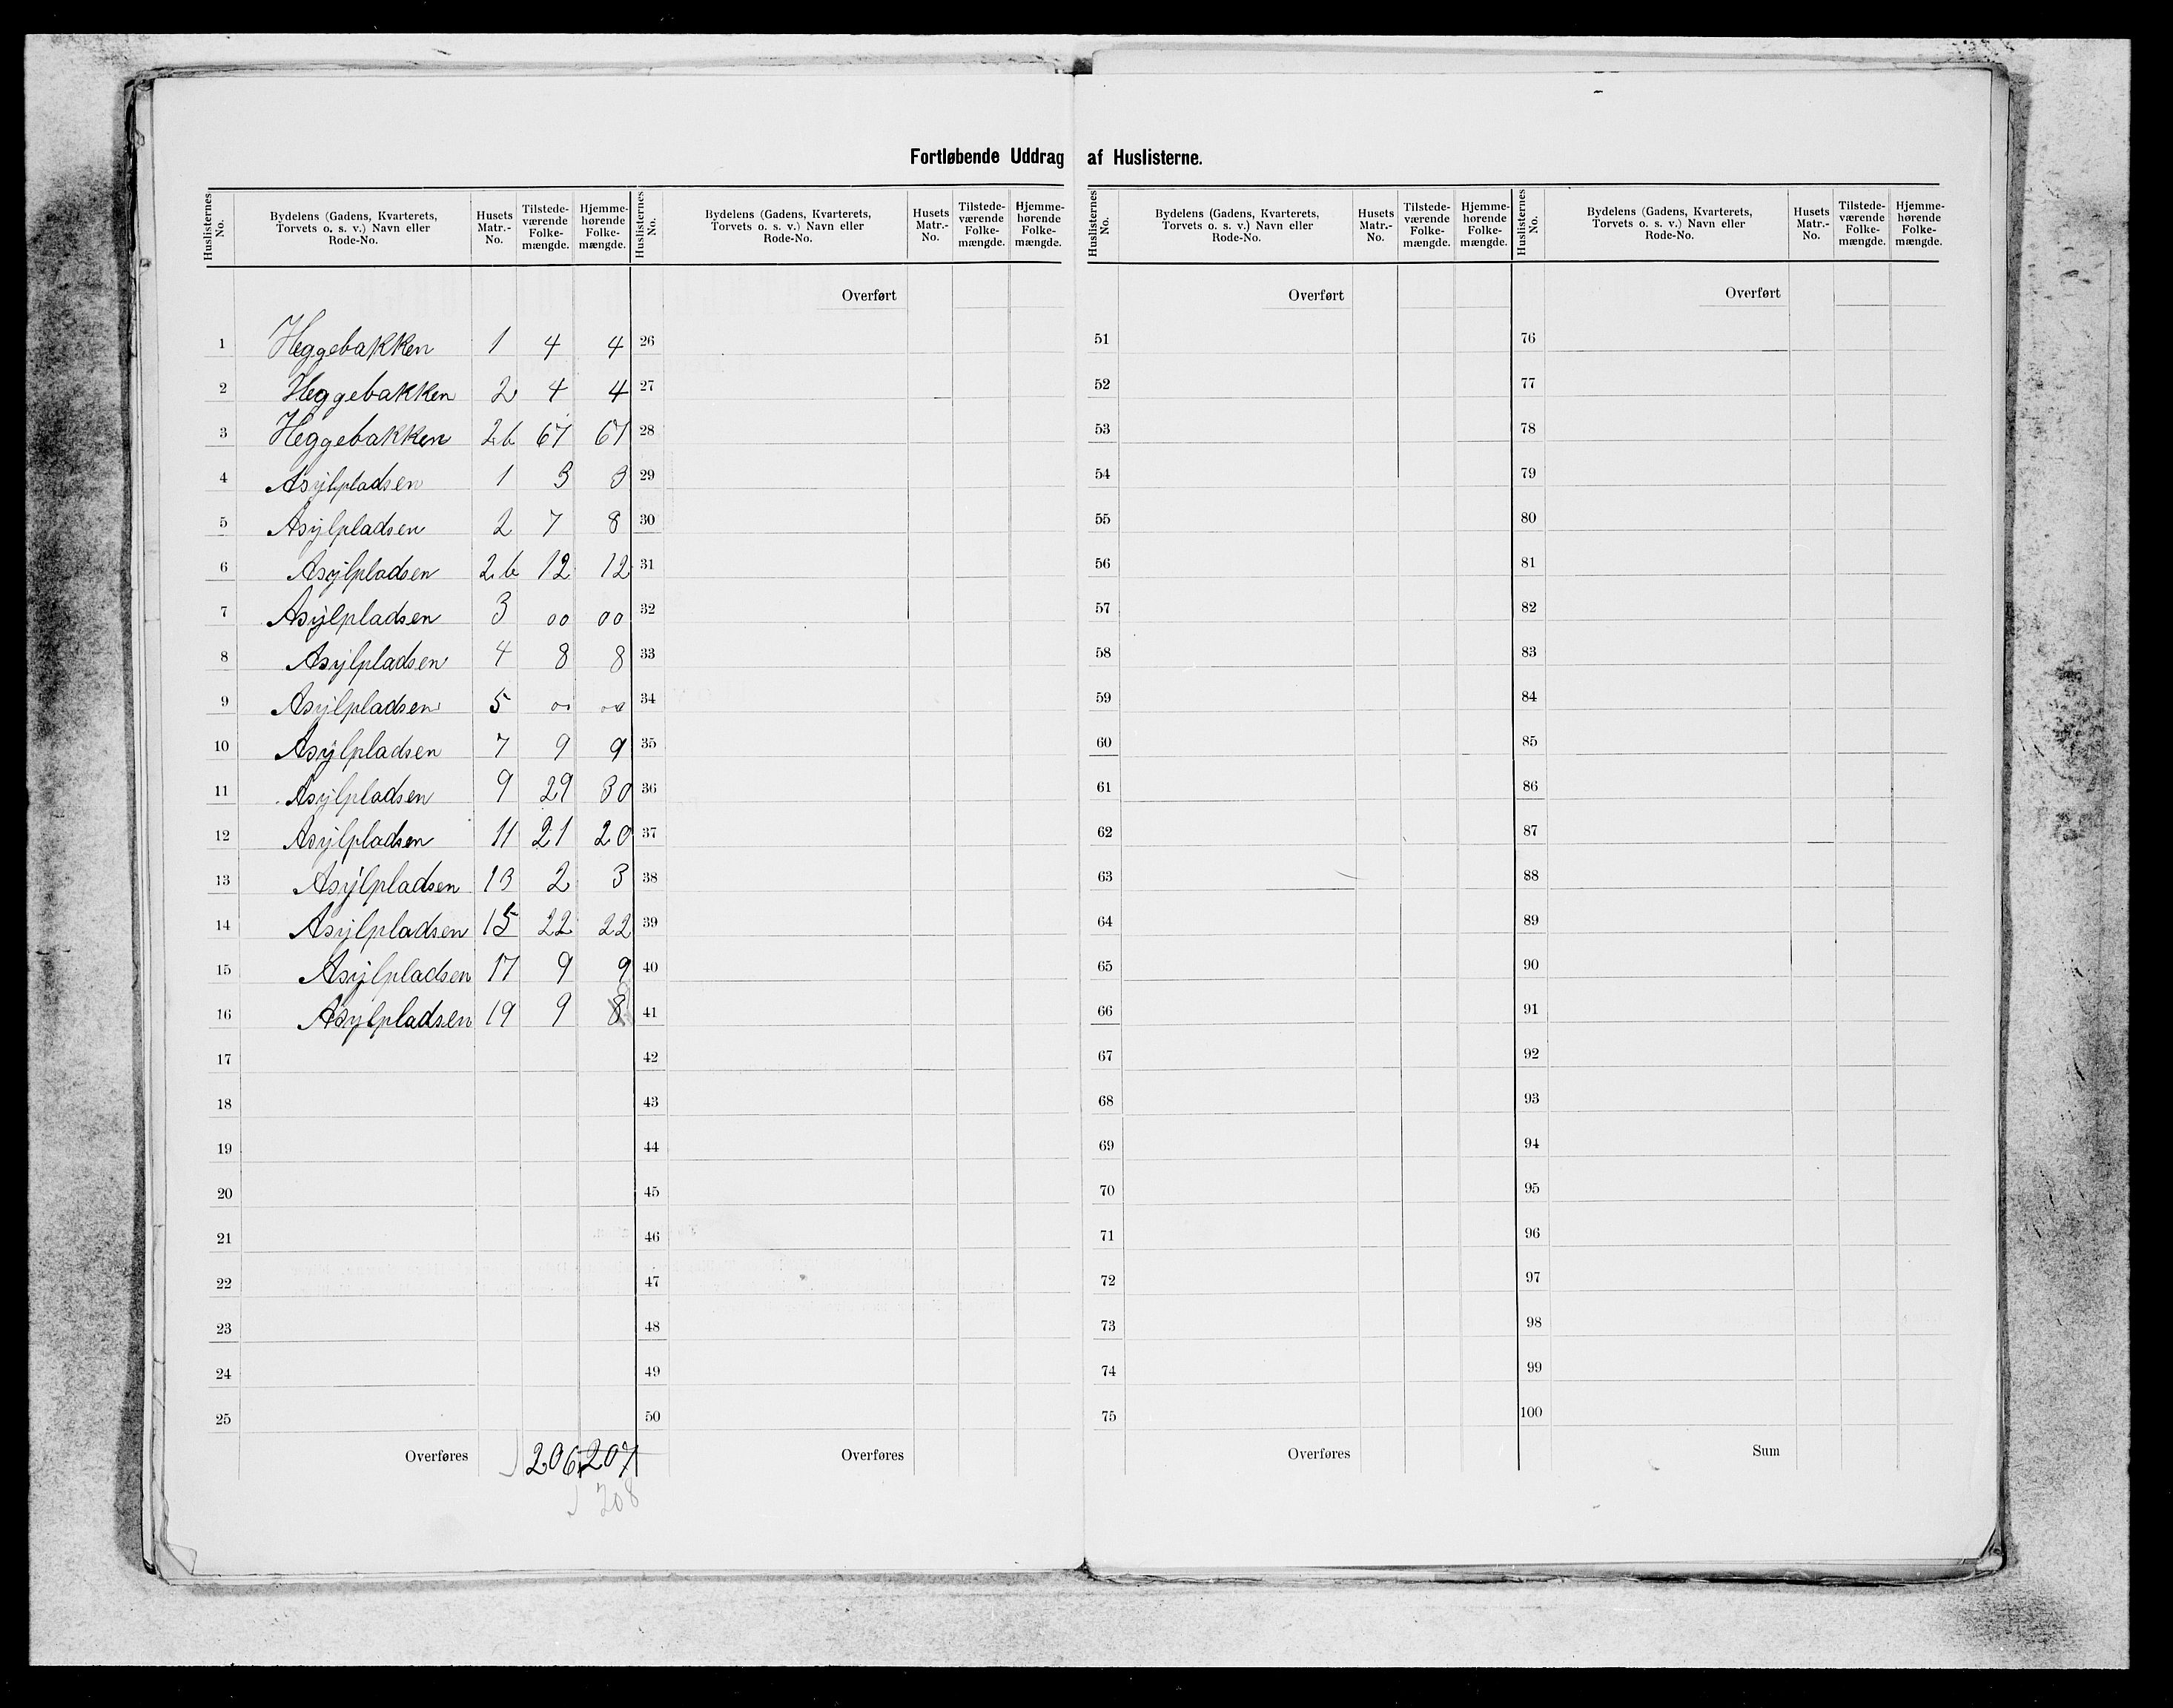 Fortløbende Uddrag af Huslisterne.
Huslisternes No. Bydelens (Gadens, Kvarterets, Torvets o. s. v.) Navn eller Rode-No. Husets Matr.-No. Tilstedeværende Folkemængde. Hjemmehørende Folkemængde. Huslisternes No. Bydelens (Gadens, Kvarterets, Torvets o. s. v.) Navn eller Rode-No. Husets Matr.-No. Tilstedeværende Folkemængde. Hjemmehørende Folkemængde. Huslisternes No. Bydelens (Gadens, Kvarterets, Torvets o. s. v.) Navn eller Rode-No. Husets Matr.-No. Tilstedeværende Folkemængde. Hjemmehørende Folkemængde. Huslisternes No. Bydelens (Gadens, Kvarterets, Torvets o. s. v.) Navn eller Rode-No. Husets Matr.-No. Tilstedeværende Folkemængde. Hjemmehørende Folkemængde.
Overført Overført Overført
1 Heggebakken 1 4 4 26 51 76
2 Heggebakken 2 4 4 27 52 77
3 Heggebakken 2b 67 67 28 53 78
4 Asylpladsen 1 3 3 29 54 79
5 Asylpladsen 2 7 8 30 55 80
6 Asylpladsen 2b 12 12 31 56 81
7 Asylpladsen 3 00 00 32 57 82
8 Asylpladsen 4 8 8 33 58 83
9 Asylpladsen 5 00 00 34 59 84
10 Asylpladsen 7 9 9 35 60 85
11 Asylpladsen 9 29 30 36 61 86
12 Asylpladsen 11 21 20 37 62 87
13 Asylpladsen 13 2 3 38 63 88
14 Asylpladsen 15 22 22 39 64 89
15 Asylpladsen 17 9 9 40 65 90
16 Asylpladsen 19 9 8 41 66 91
17 42 67 92
18 43 68 93
19 44 69 94
20 45 70 95
21 46 71 96
22 47 72 97
23 48 73 98
24 49 74 99
25 50 75 100
Overføres 206 207 Overføres Overføres Sum
208